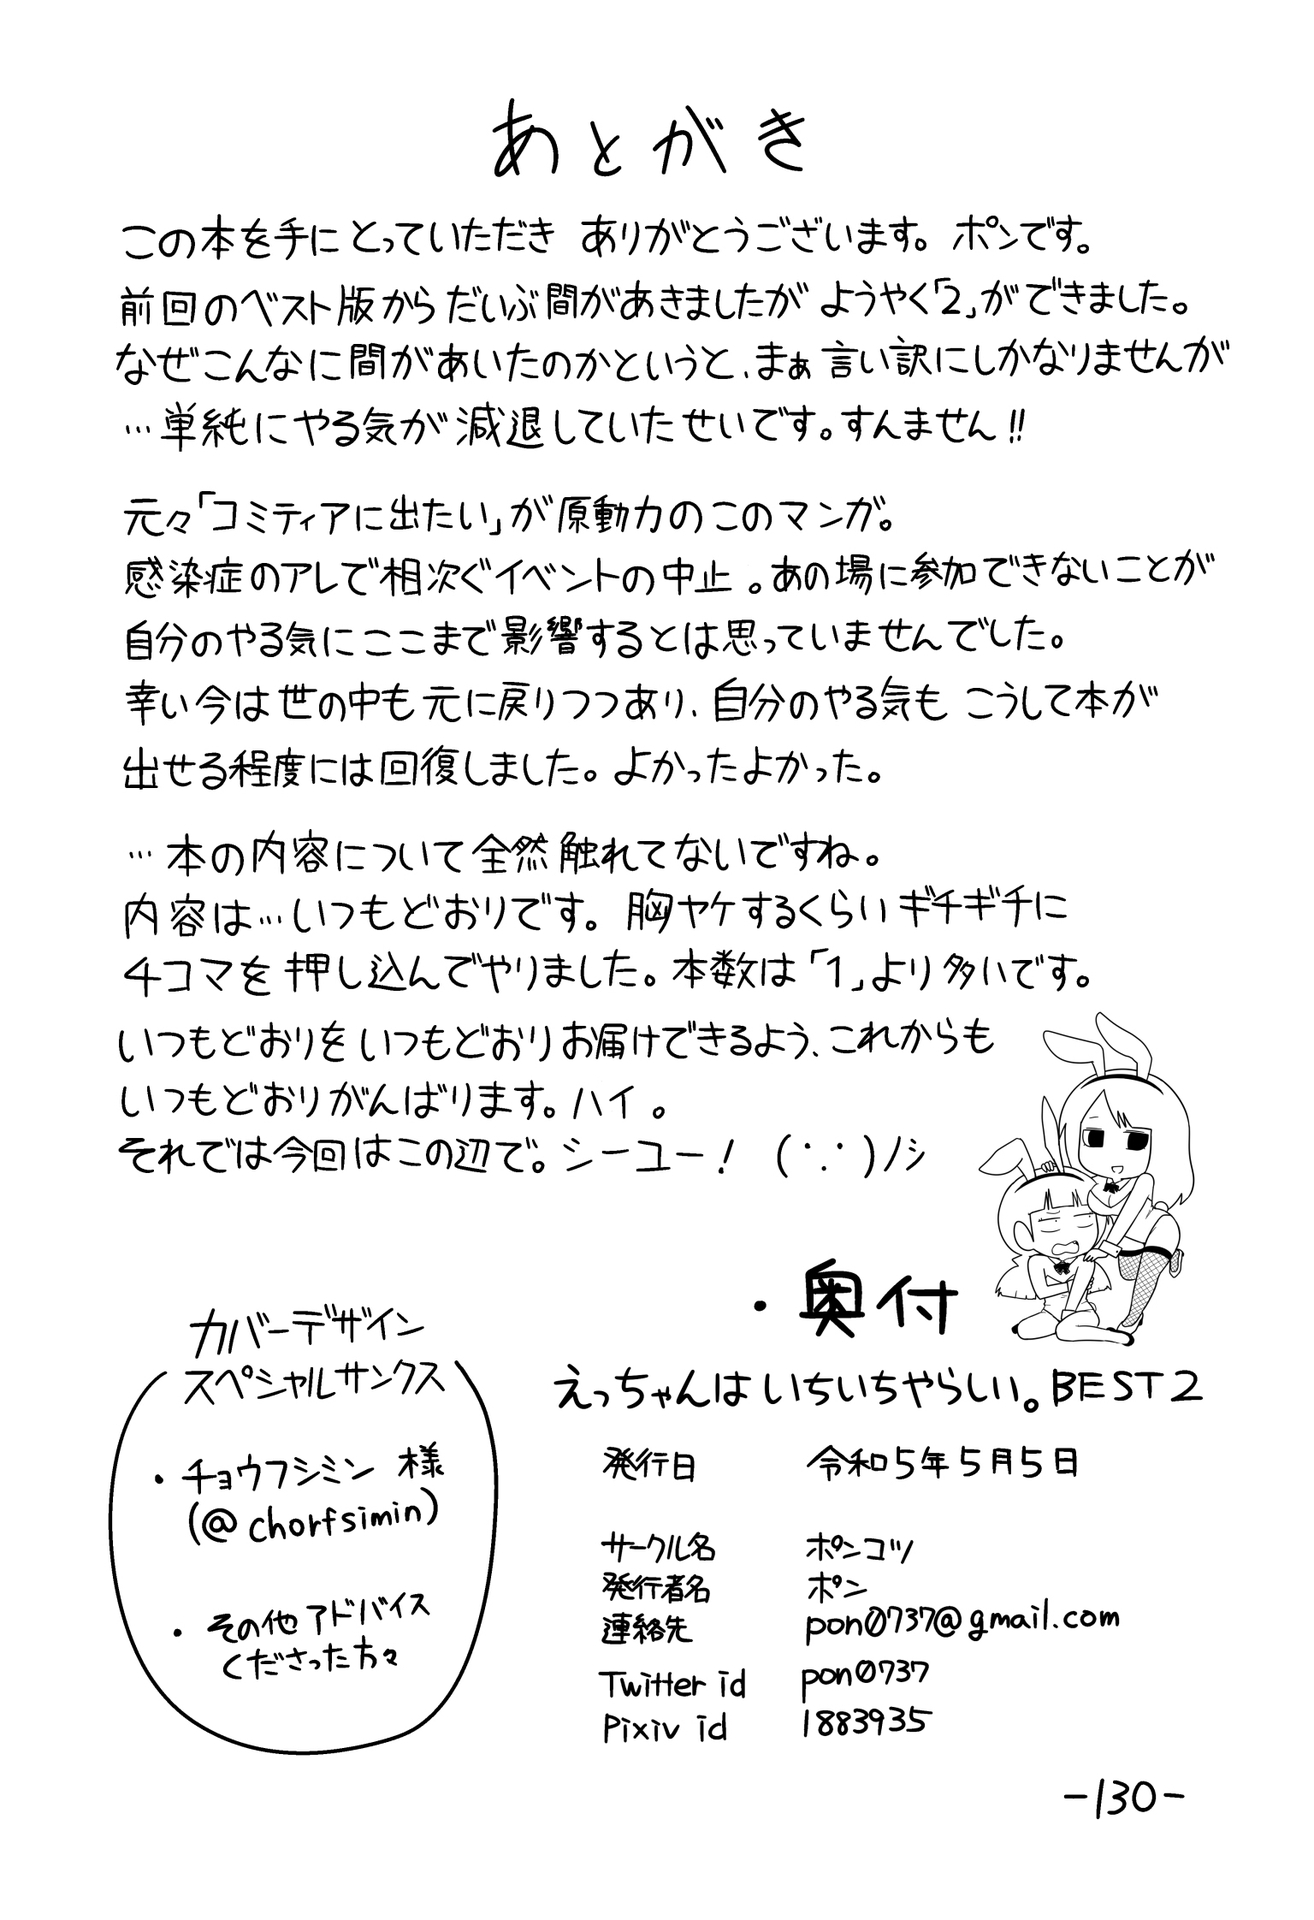 あとがき
この本を手にとっていただき ありがとうございます。 ポンです。
前回のベスト版から だいぶ間があきましたが ようやく「2」ができました。
なぜこんなに間があいたのかというと、まぁ言い訳にしかなりませんが
…単純にやる気が減退していたせいです。すんません!!
元々「コミティアに出たい」が原動力のこのマンガ。
感染症のアレで相次ぐイベントの中止。あの場に参加できないことが
自分のやる気にここまで影響するとは思っていませんでした。
幸い今は世の中も元に戻りつつあり、自分のやる気も こうして本が
出せる程度には回復しました。よかったよかった。
…本の内容について全然触れてないですね。
内容は…いつもどおりです。 胸ヤケするくらいギチギチに
4コマを押し込んでやりました。本数は「1」より多いです。
いつもどおりをいつもどおりお届けできるよう、これからも
いつもどおりがんばります。ハイ。
それでは今回はこの辺で。シーユー! (∵)ﾉｼ
カバーデザイン
スペシャルサンクス
・チョウフシミン 様
(@chorfsimin)
・その他アドバイス
くださった方々
・奥付
えっちゃんはいちいちやらしい。BEST2
発行日 令和5年5月5日
サークル名 ポンコツ
発行者名 ポン
連絡先 pon0737@gmail.com
Twitter id pon0737
Pixiv id 1883935
-130-